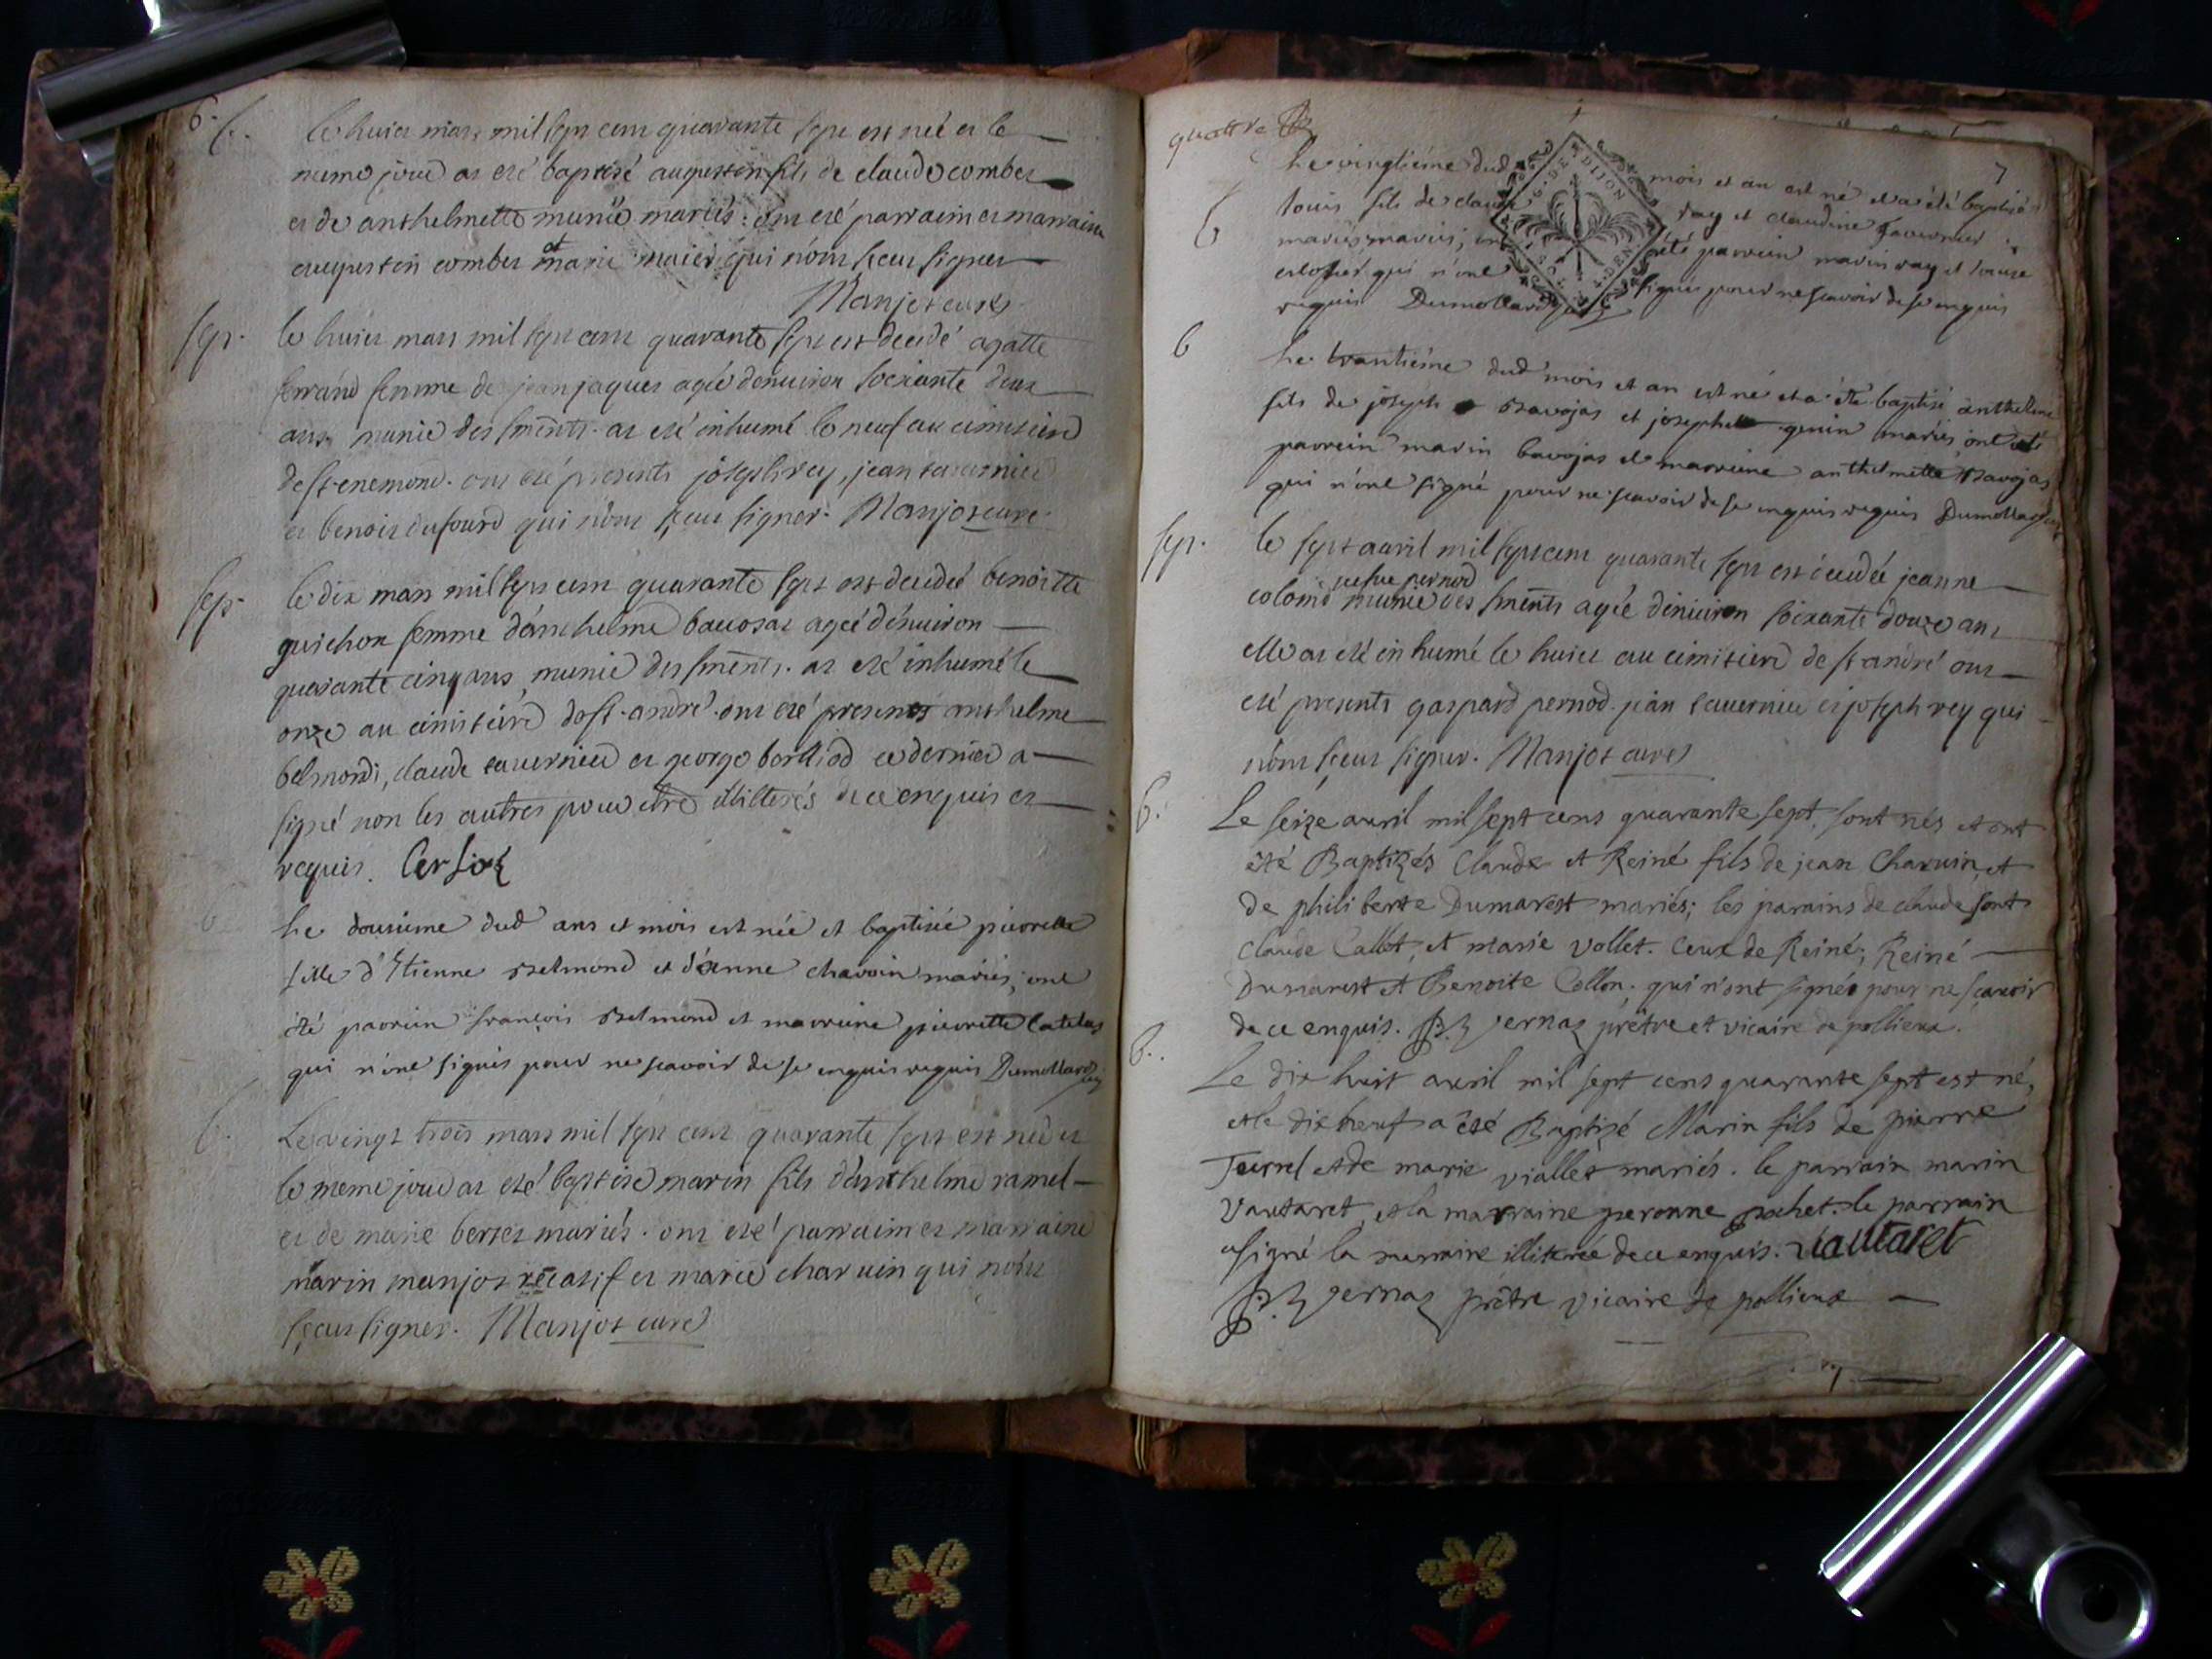 b.
le huict mars mil sept cent quarante sept est né et le
meme jour at eté baptisé augustin fils de claude combet
et de anthelmette munié mariés. ont eté parrain et marraine
augustin combet et marie qui n'ont sçeu signer
Manjot curé
sep.
le huict mars mil sept cent quarante sept est decedé agatte
ferrand femme de jean jaques agée d'enuiron soixante deux
ans munie des sments. at eté inhumé le neuf au cimitierre
de st. enemond. ont eté presents joseph rey, jean tauernier
et benoit dufourd qui n'ont sçeu signer. Manjot curé
sep.
le dix mars mil sept cent quarante sept est decedeé benoitte
guichon femme d'anthelme agée d'enuiron
quarante cinq ans, munie des sments. at eté inhumé le
onze au cimitierre de st. andré. ont eté presents anthelme
belmond, claude tauernier et george ce dernier a
signé non les autres pour etre illiterés de ce enquis et
requis.
b
Le dousieme dud ans et mois est née et baptisée pierrette
fille d'Etienne Belmond et d'anne chavoin mariés, ont
été parrein françois Belmond et marreine pierrette Catelas
qui n'ont signés pour ne scavoir de se enquis requis Dumollard
b.
Le vingt trois mars mil sept cent quarante sept est né et
le meme jour at eté baptisé marin fils d'anthelme ramel
et de marie bertet mariés. ont eté parrain et marraine
marin manjot et marie charuin qui n'ont
sçeu signer. Manjot curé
quattre
7
G. DE DIJON
Le vingtiéme dud mois et an est né et a été baptisé
b
louis fils de claude ray et claudine Tavernier
mariés mariés; ont été parrein marin ray et louise
qui n'ont signés pour ne scavoir de se enquis
requis Dumollard
b
Le trantiéme dud mois et an est né et a été baptisé anthelme
fils de joseph Bavojas et josephe genin mariés, ont été
parrein marin bavojas et marreine anthelmette Bavojas
qui n'ont signé pour ne scavoir de se enquis requis Dumollard
sep.
le sept auril mil sept cent quarante sept est decedée jeanne
vefue pernod
colomb munie des sments agée d'enuiron soixante douze ans
elle at eté inhumé le huict au cimitierre de st andré ont
eté presents gaspard pernod. jean tauernier et joseph rey qui
n'ont sçeu signer. Manjot curé
b.
Le seize auril mil sept cens quarante sept, sont nés et ont
été Baptizés Claude et Reiné fils de jean Charuin, et
de philiberte Dumarest mariés; les parains de claude sont
Claude Callot, et marie vollet. Ceux de Reiné; Reiné
Dumarest et Benoite Collon. qui n'ont signés pour ne sçavoir
de ce enquis. vernaz prêtre et vicaire de pollieux.
b.
Le dix huit auril mil sept cens quarante sept est né,
et le dix neuf a été Baptizé Marin fils de pierre
et de marie viallet mariés. le parrain marin
Vautaret, et la marraine peronne pochet. le parrain
a signé la marraine illiterée de ce enquis. Vautaret
vernaz prêtre vicaire de pollieux